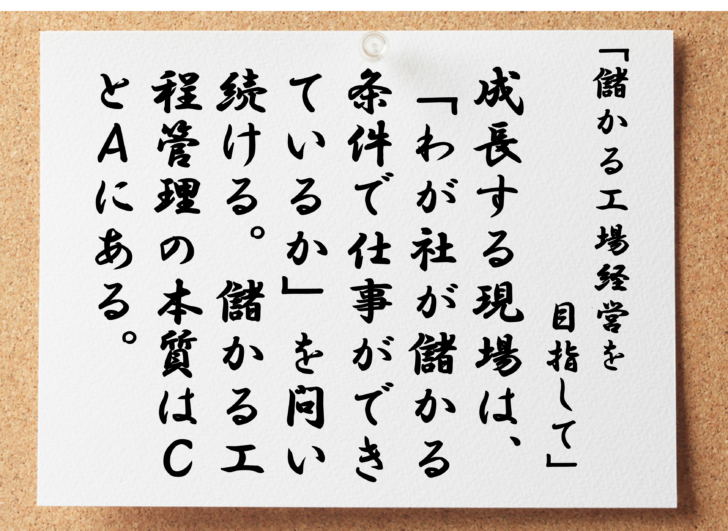 「儲かる工場経営を
目指して」
成長する現場は、
「わが社が儲かる
条件で仕事ができ
ているか」を問い
続ける。儲かる工
程管理の本質はC
とAにある。